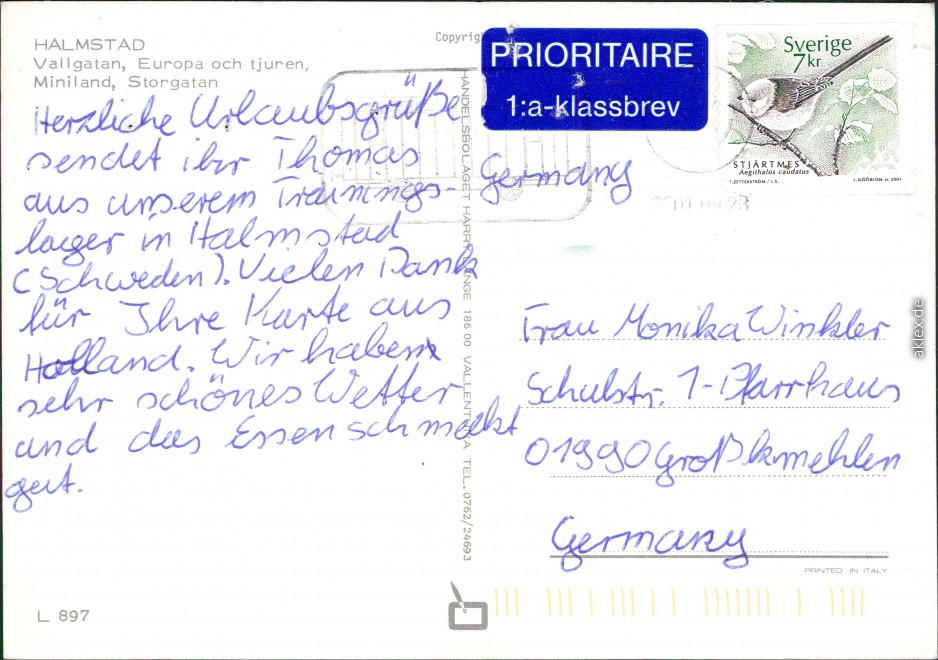 HALMSTAD
Vallgatan, Europa och tjuren,
Miniland, Storgatan
Herzliche Urlaubsgrüße
sendet ihr Thomas
aus unserem Trainings-
lager in Halmstad
(Schweden). Vielen Dank
für Ihre Karte aus
Holland. Wir haben
sehr schönes Wetter
und das Essen schmeckt
gut.
L 897
Copyrig
HANDELSBOLAGET HARRY LANGE 186 00 VALLENTUNA TEL. 0762/24693
PRIORITAIRE
1:a-klassbrev
Sverige
7kr
STJÄRTMES
Aegithalos caudatus
L. SJÖÖBLOM sc 2001
Germany
Frau Monika Winkler
Schulstr. 1-Pfarrhaus
01990 Großkmehlen
Germany
PRINTED IN ITALY
aklex.de